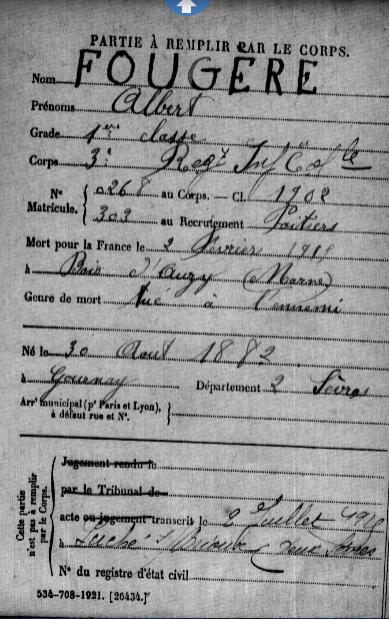 PARTIE À REMPLIR PAR LE CORPS.
Nom FOUGERE
Prénoms Albert
Grade 1ère classe
Corps 3e Regt Inf Col le
N° Matricule. { 0268 au Corps. — Cl. 1902
303 au Recrutement Poitiers
Mort pour la France le 2 Février 1915
à Bois d'Auzy (Marne)
Genre de mort Tué à l'ennemi
Né le 30 Aout 1882
à Gournay Département 2 Sèvres
Arrt municipal (pr Paris et Lyon), à défaut rue et N°. }
Cette partie n'est pas à remplir par le Corps.
Jugement rendu le
par le Tribunal de
acte ou jugement transcrit le 2 Juillet
à Luché s/ Brioux Deux Sèvres
N° du registre d'état civil
534-708-1921. [26434.]